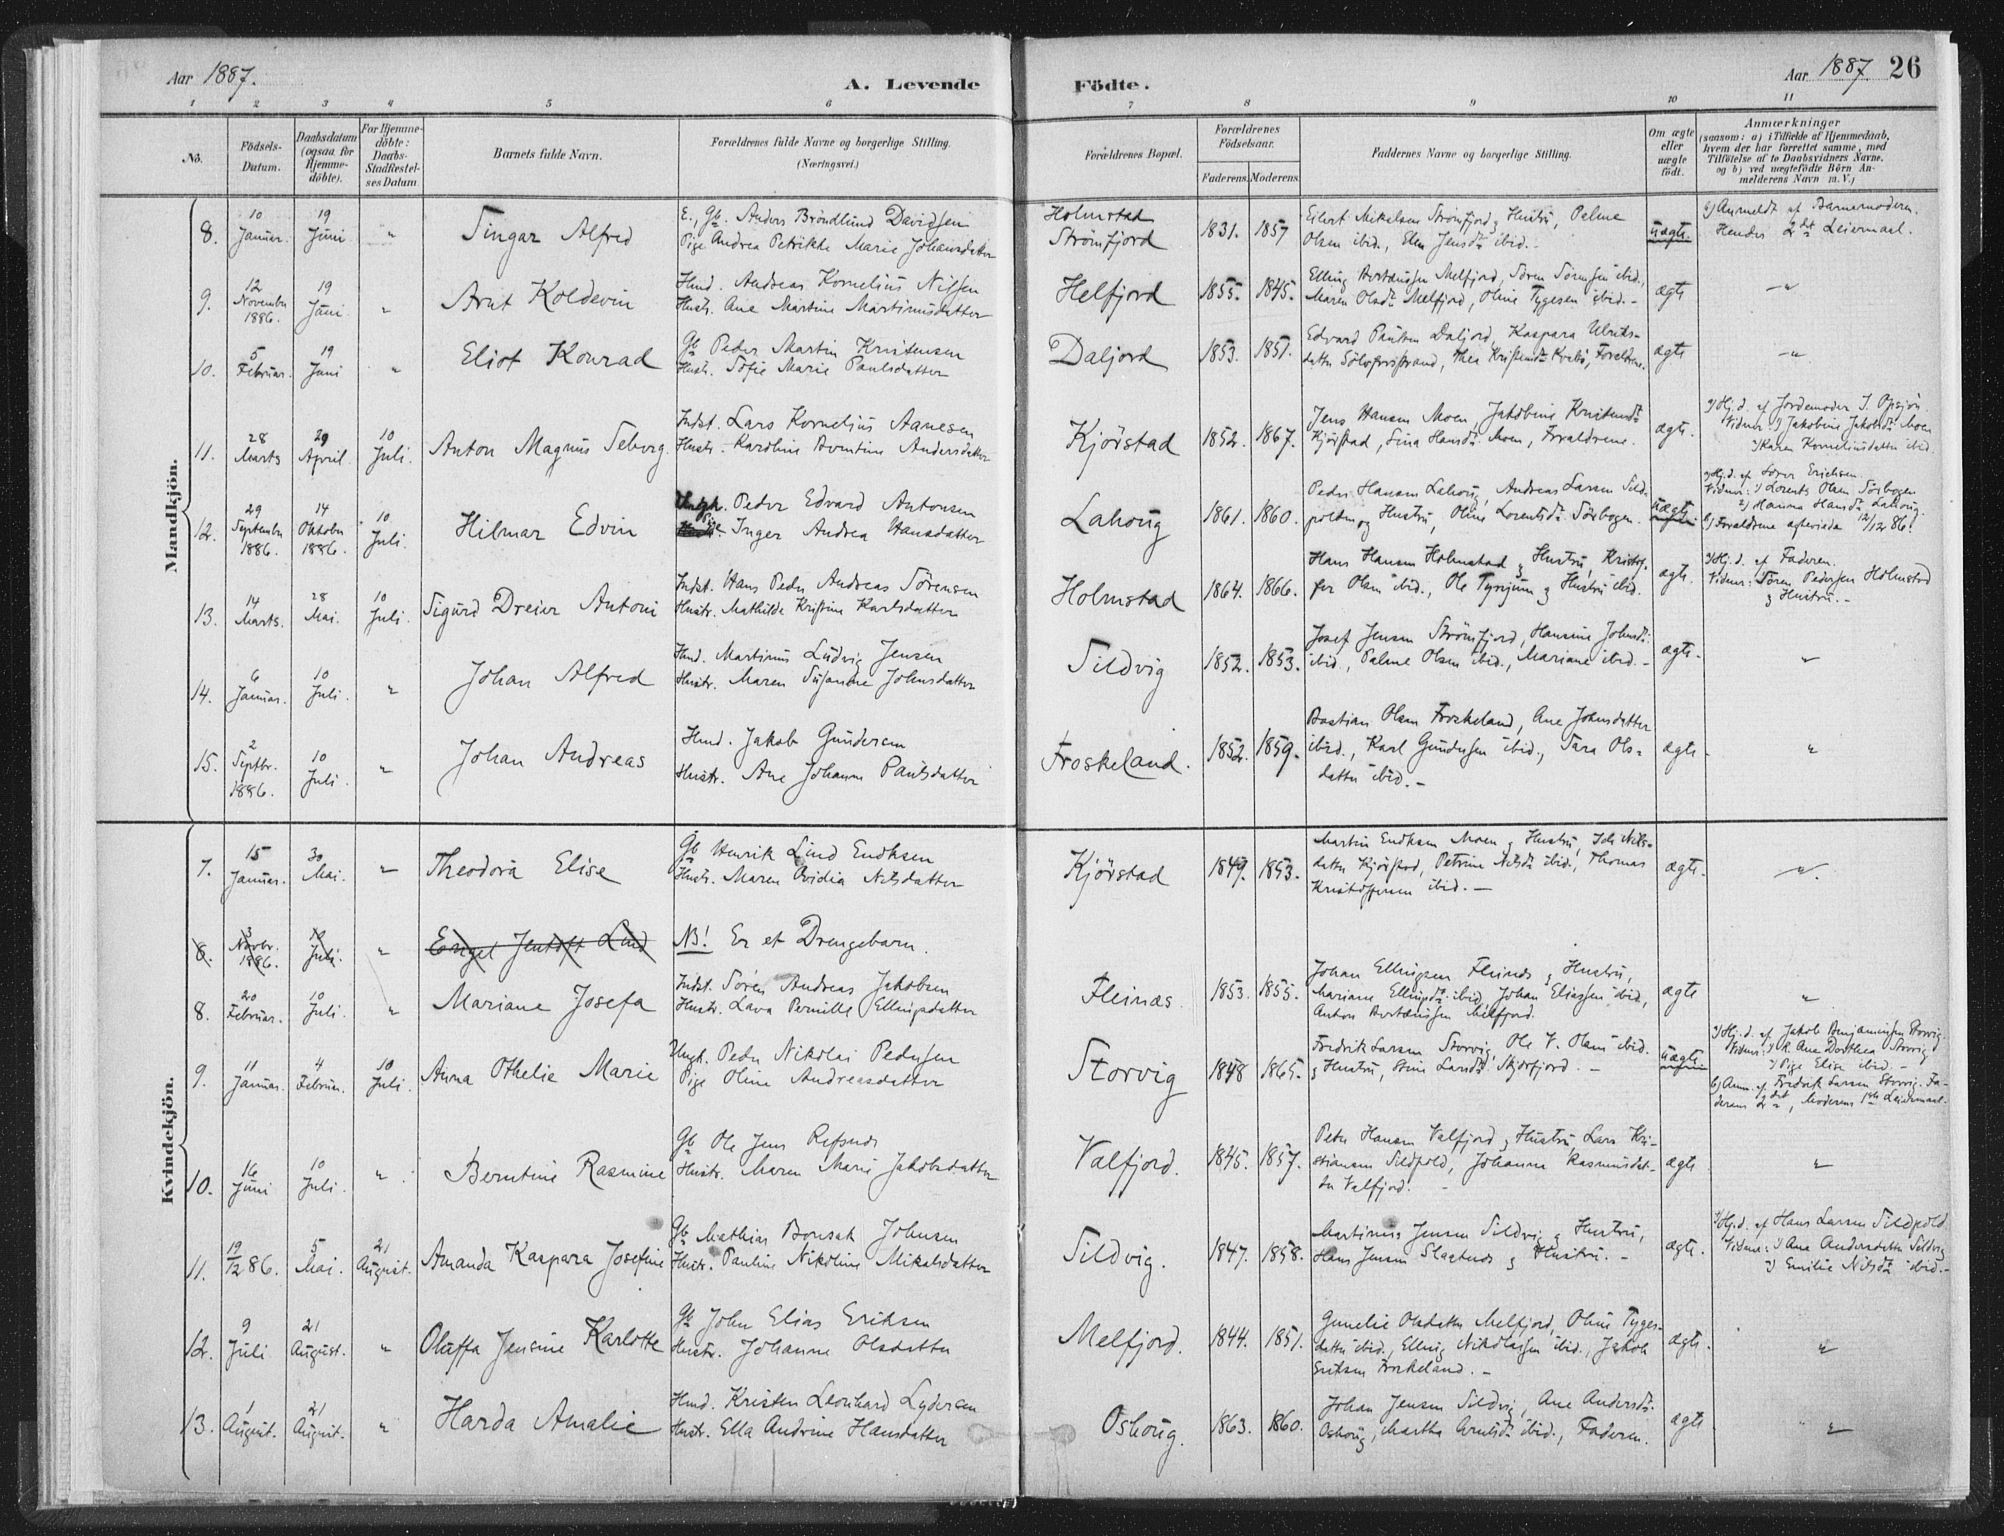 Aar 1887.
A. Levende
Födte.
Aar 1887. 26
1 2 3 4 5 6 7 8 9 10 11
No.
Födsels-Datum.
Daabsdatum (ogsaa for Hjemme-döbte).
For Hjemme-döbte: Daabs-Stadfæstel-ses Datum
Barnets fulde Navn.
Forældrenes fulde Navne og borgerlige Stilling.
(Næringsvei.)
Forældrenes Bopæl.
Forældrenes Födselsaar.
Faderens. Moderens.
Faddernes Navne og borgerlige Stilling.
Om ægte eller uægte födt.
Anmærkninger
(saasom: a) i Tilfælde af Hjemmedaab,
hvem der har forrettet samme, med
Tilföielse af to Daabsvidners Navne.
og b) ved uægtefödte Börn An-
melderens Navn m. V.)
Mandkjön.
8. 10 Januar. 19 Juni " Singar Alfred
E., Gb. Anders Bröndlund Davidsen
Pige Andrea Petrikke Marie Johansdatter
Holmstad Strömfjord 1831. 1857
Eilert Mikelsen Strömfjord & Hustru, Palme
Olsen ibid., Elen Jensdr ibid.
uægte.
b) Anmeldt af Barnemoderen.
Hendes 2det Leiermaal.
9. 12 Novembr 1886. 19 Juni " Arnt Koldevin
Hmd. Andreas Kornelius Nilsen
Hustr. Ane Martine Martinusdatter
Helfjord 1855. 1845.
Elling Melfjord, Sören Sörensen ibid.,
Maren Olsdr Melfjord, Oline Tygesen ibid. -
ægte -"-
10. 5 Februar. 19 Juni " Eliot Konrad
Gb Peder Martin Kristensen
Hustr. Sofie Marie Paulsdatter
Daljord 1853. 1851.
Edvard Paulsen Daljord, Kaspara Ulriks-
datter Thea Forældrene.
ægte -"-
11. 28 Marts 29 April. 10 Juli. Anton Magnus Seberg.
Indst. Lars Kornelius Aanesen
Hustr. Karoline Berntine Andersdatter
Kjörstad 1852. 1867.
Jens Hansen Moen, Jakobine Kristensdr
Kjörstad, Sina Hansdr Moen, Forældrene.
ægte.
a) Hj.d. af Jordemoder J. Opsjön.
Vidner: 1) Jakobine Jakobsdr Moen
2) Karen Kornelinsdatter ibid.
12. 29 Septembr 1886. 14 Oktober 1886. 10 Juli. Hilmar Edvin
Ungk. Peder Edvard Antonsen
Pige Inger Andrea Hansdatter
Lahoug 1861. 1860.
Peder Hansen Lahoug, Andreas Larsen Sild-
polden og Hustru, Oline Lorentsdr Sörbogen.
uægte
a) Hj.d. af Erichsen
Vidner: 1) Lorents Olsen Sörbogen
2) Hanna Hansdr Lahoug.
b) Forældrene ægteviede 12/12 86.
13. 14 Marts. 28 Mai. 10 Juli. Sigurd Dreier Antoni
Indst. Hans Peder Andreas Sörensen
Hustr. Mathilde Kristine Karlsdatter
Holmstad 1864. 1866.
Hans Hansen Holmstad & Hustru, Kristof-
fer Olsen ibid., Ole & Hustru ibid.
ægte.
a) Hj.d. af Faderen.
Vidner: Sören Pedersen Holmstad
& Hustru. -
14. 6 Januar. 10 Juli. " Johan Alfred
Hmd. Martinus Ludvig Jensen
Hustr. Maren Susanne Johnsdatter
Sildvig 1852. 1853.
Josef Jensen Strömfjord, Hansine Johnsdr
ibid., Palme Olsen ibid., Mariane ibid. -
ægte. "
15. 2 Septbr. 1886. 10 Juli. " Johan Andreas
Hmd. Jakob Gundersen
Hustr. Ane Johanna Paulsdatter
Froskeland. 1852. 1859.
Bastian Olsen Froskeland, Ane Johnsdatter
ibid., Karl Gundersen ibid., Sara Ols-
datter ibid. -
ægte. "
Kvindekjön.
7. 15 Januar. 30 Mai. " Theodora Elise
Gb Henrik Lind Endksen
Hustr. Maren Ovidia Nilsdatter
Kjörstad 1849. 1853.
Martin Endksen Moen & Hustru, Nils-
datter Kjörstad, Petrine Nilsdr ibid., Thomas
Kristoffersen ibid. -
ægte. "
8. 3 Novbr. 1886. 10 Juli. " Engel Jentoft Lind
NB! Er et Drengebarn.
8. 20 Februar. 10 Juli. " Mariane Josefa
Indst. Sören Andreas Jakobsen
Hustr. Lava Pernille Ellingsdatter
Fleinæs. 1853. 1855.
Johan Ellingsen Fleinæs & Hustru,
Mariane Ellingsdr ibid, Johan Eliassen ibid,
Anton Melfjord.
ægte "
9. 11 Januar. 4 Februar. 10 Juli. Anna Othelie Marie
Ungk. Peder Nikolai Pedersen
Pige Oline Andreasdatter
Storvig 1848 1865.
Fredrik Larsen Storvig, Ole V. Olsen ibid.
& Hustru, Stine Larsdr Skjörfjord. -
uægte
a) Hj.d. af Jakob Benjaminsen Storvig
Vidner: 1) K. Ane Dorthea Storvig
2) Pige Elise ibid. -
b) Anm. af Fredrik Larsen Storvig. Fa-
derens 2det, Moderens 1ste Leiermaal.
10. 16 Juni 10 Juli. " Berntine Rasmine
Gb Ole Jens Refsnæs
Hustr. Maren Marie Jakobsdatter
Valfjord. 1845. 1857.
Peder Hansen Valfjord & Hustru, Lars Kri-
stiansen Sildpold, Johanna Rasmusdat-
ter Valfjord.
ægte "
11. 19/12 86. 5 Mai. 21 August. Amanda Kaspara Josefine
Gb Mathias Bonsak Johnsen
Hustr. Pauline Nikoline Mikalsdatter
Sildvig. 1847. 1858.
Martinus Jensen Sildvig & Hustru,
Hans Jensen Slagtnes & Hustru. -
ægte.
a) Hj.d. af Hans Larsen Sildpold
Vidner: 1) Ane Andersdatter Sildvig
2) Emilie Nilsdr ibid. -
12. 9 Juli 21 August. " Olaffa Jensine Karlotte
Gb John Elias Eriksen
Hustr. Johanna Olsdatter
Melfjord. 1844. 1851.
Gunelie Olsdatter Melfjord, Oline Tyges-
datter ibid., Elling Nikolaisen ibid., Jakob
Eriksen Froskeland. -
ægte. "
13. 1 August. 21 August. " Harda Amalie
Hmd. Kristen Leonhard Lydersen
Hustr. Ella Andrine Hansdatter
Oshoug. 1863. 1860.
Johan Jensen Sildvig, Ane Andersdr
Oshoug, Martha Arntsdr ibid., Faderen.
ægte "